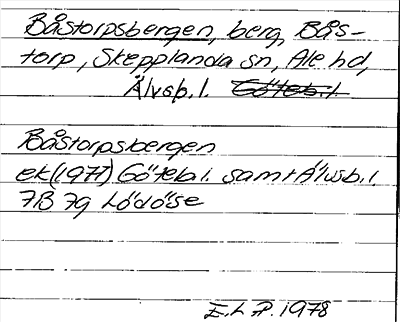 Båstorpsbergen, berg, Bås-
torp, Skepplanda sn, Ale hd,
Älvsb.l. Göteb.l.
Båstorpsbergen
ek(1977) Göteb l. samt Älvsb.l.
7B 7g Lödöse
E.L.P. 1978